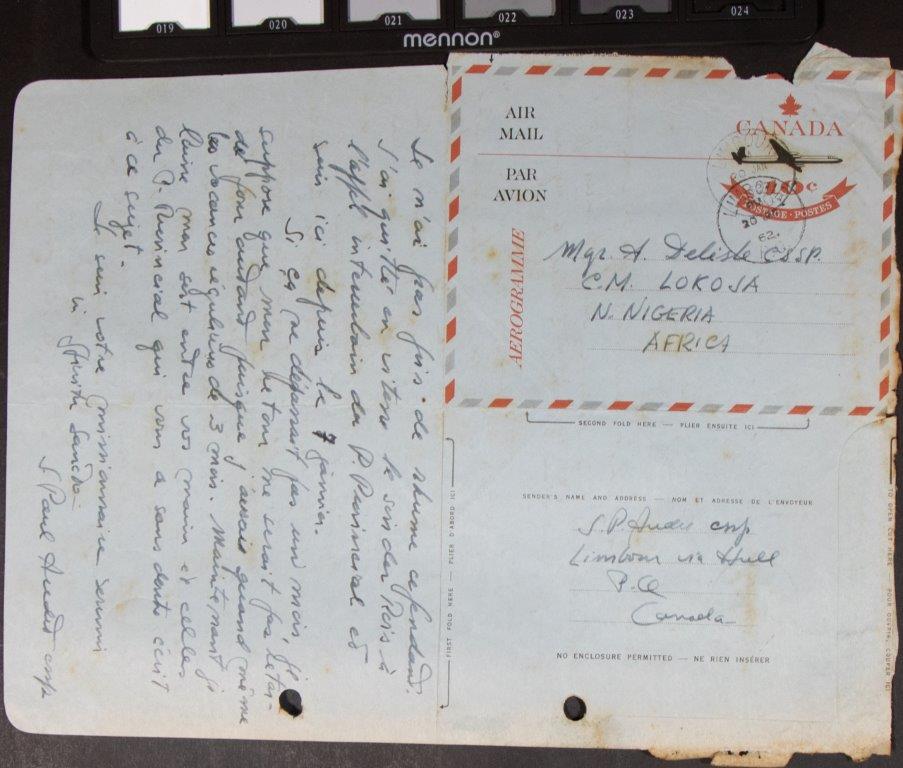 019 020 021 022 023 024
mennon®
AIR
MAIL
PAR
AVION
AEROGRAMME
CANADA
10¢
POSTAGE · POSTES
62
Mgr. A. Delisle C.S.SP.
C.M. LOKOJA
N. NIGERIA
AFRICA
SECOND FOLD HERE — PLIER ENSUITE ICI
SENDER'S NAME AND ADDRESS — NOM ET ADRESSE DE L'ENVOYEUR
S.P. Audet cssp
Limbour via Hull
P.Q
Canada
NO ENCLOSURE PERMITTED — NE RIEN INSÉRER
FIRST FOLD HERE — PLIER D'ABORD ICI
TO OPEN CUT HERE — POUR OUVRIR, COUPER ICI
Je n'ai pas fini de rhume cependant.
J'ai quitté en vitesse le soir des Rois à
l'appel du P. Provincial et
suis ici depuis le 7 janvier.
Si ça ne dépassait pas un mois, je
suppose que mon retour ne serait pas retar-
dé pour autant puisque j'aurais quand même
les vacances régulières de 3 mois. Maintenant
mon sort est entre vos mains et celles
du P. Provincial qui vous a sans doute écrit
à ce sujet.
Je suis votre missionnaire soumis
in Spiritu Sancto
S Paul Audet cssp